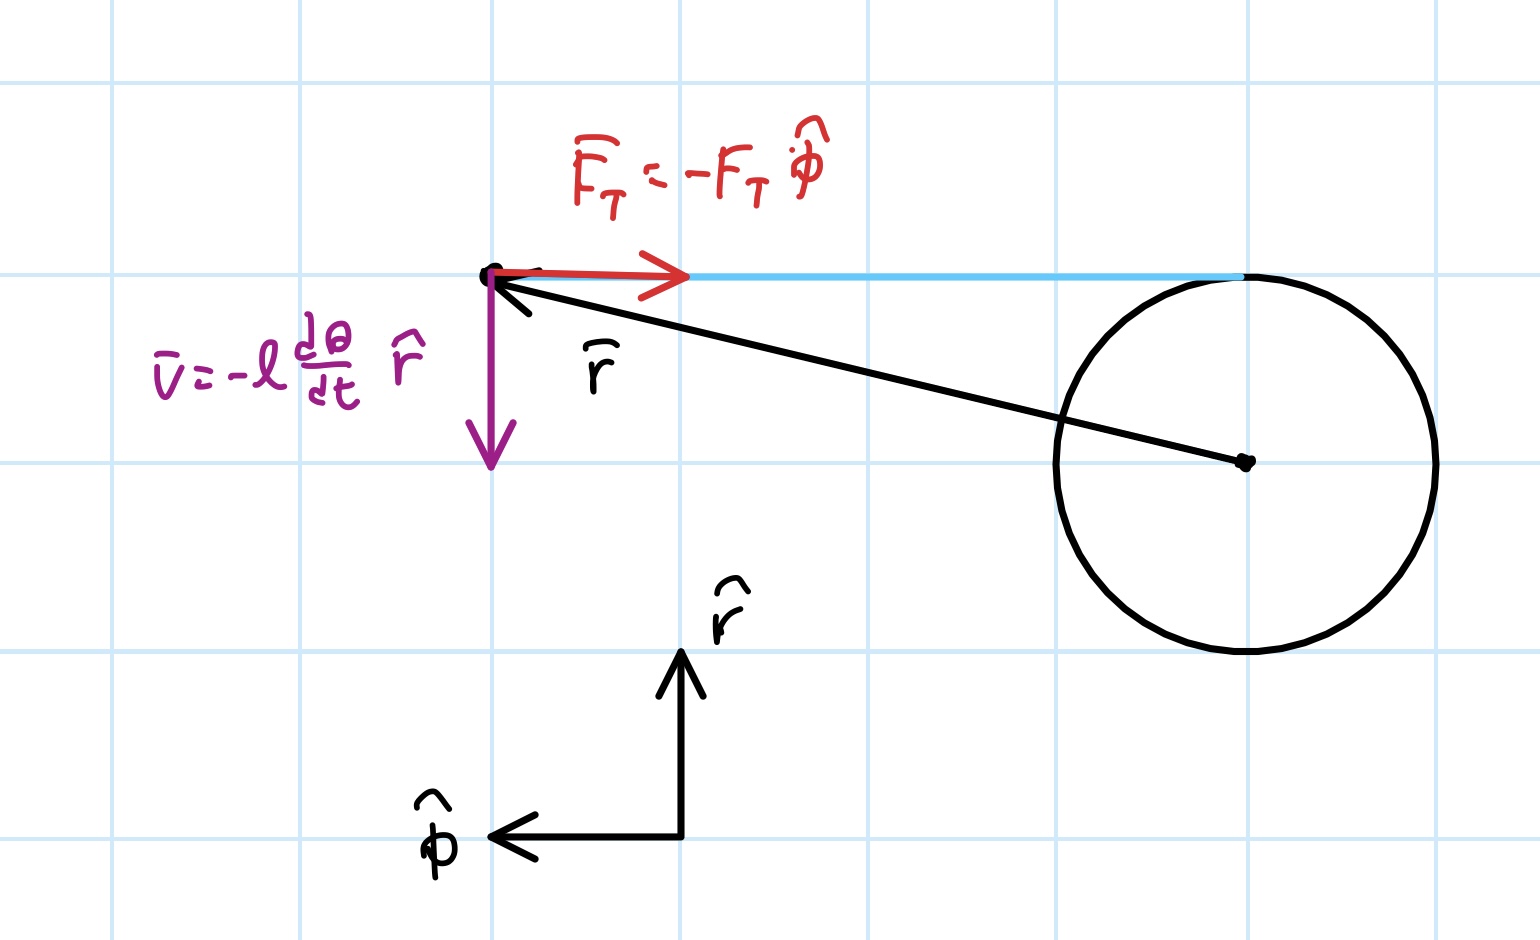 F̄_T = -F_T φ̂
v̄ = -l dθ/dt r̂
r̄
r̂
φ̂